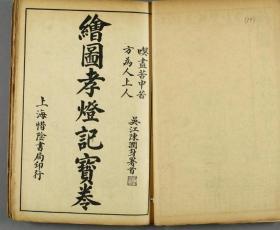 喫盡苦中苦
方為人上人
吳江陳潤身署首
繪圖孝燈記寶卷
上海惜陰書局印行